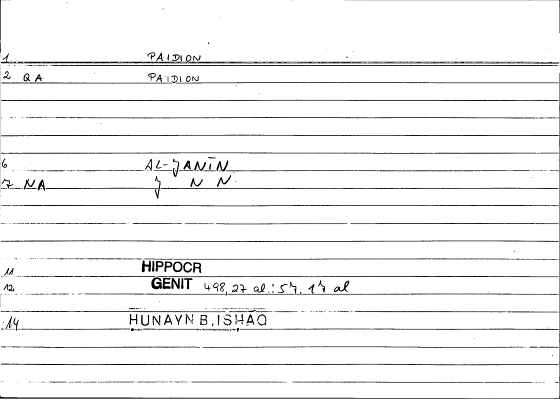 1 PAIDION
2 QA PAIDION
6 AL-JANĪN
7 NA J N N
11 HIPPOCR
12 GENIT 498,27 al.: 57, 17 al
14 HUNAYN B. ISHAQ